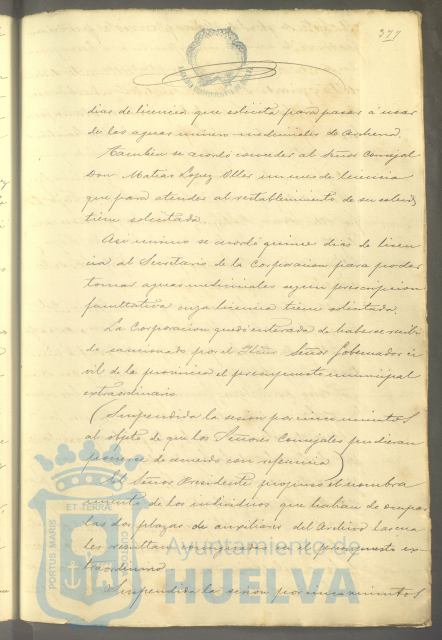 377
dias de licencia que solicita para pasar á usar
de las aguas minero medicinales de Archena.
Tambien se acordó conceder al Señor Concejal
Don Matias Lopez un mes de licencia
que para atender al restablecimiento de su salud
tiene solicitada.
Asi mismo se acordó quince dias de licen
cia al Secretario de la Corporacion para poder
tomar aguas medicinales segun prescripcion
facultativa cuya licencia tiene solicitada.
La Corporacion quedó enterada de haberse recibi
do sancionado por el Señor Gobernador ci
vil de la provincia el presupuesto municipal
extraordinario
(Suspendida la sesion por cinco minutos
al objeto de que los Señores Concejales pudieran
ponerse de acuerdo con referencia)
El Señor Presidente propuso el nombra
miento de los individuos que habian de ocupar
las dos plazas de auxiliares del Archivo las cua
les resultan consignadas en el presupuesto ex
traordinario
Suspendida la sesion por cinco minutos
PORTUS MARIS
ET TERRÆ
CUSTODIO
Ayuntamiento de
HUELVA